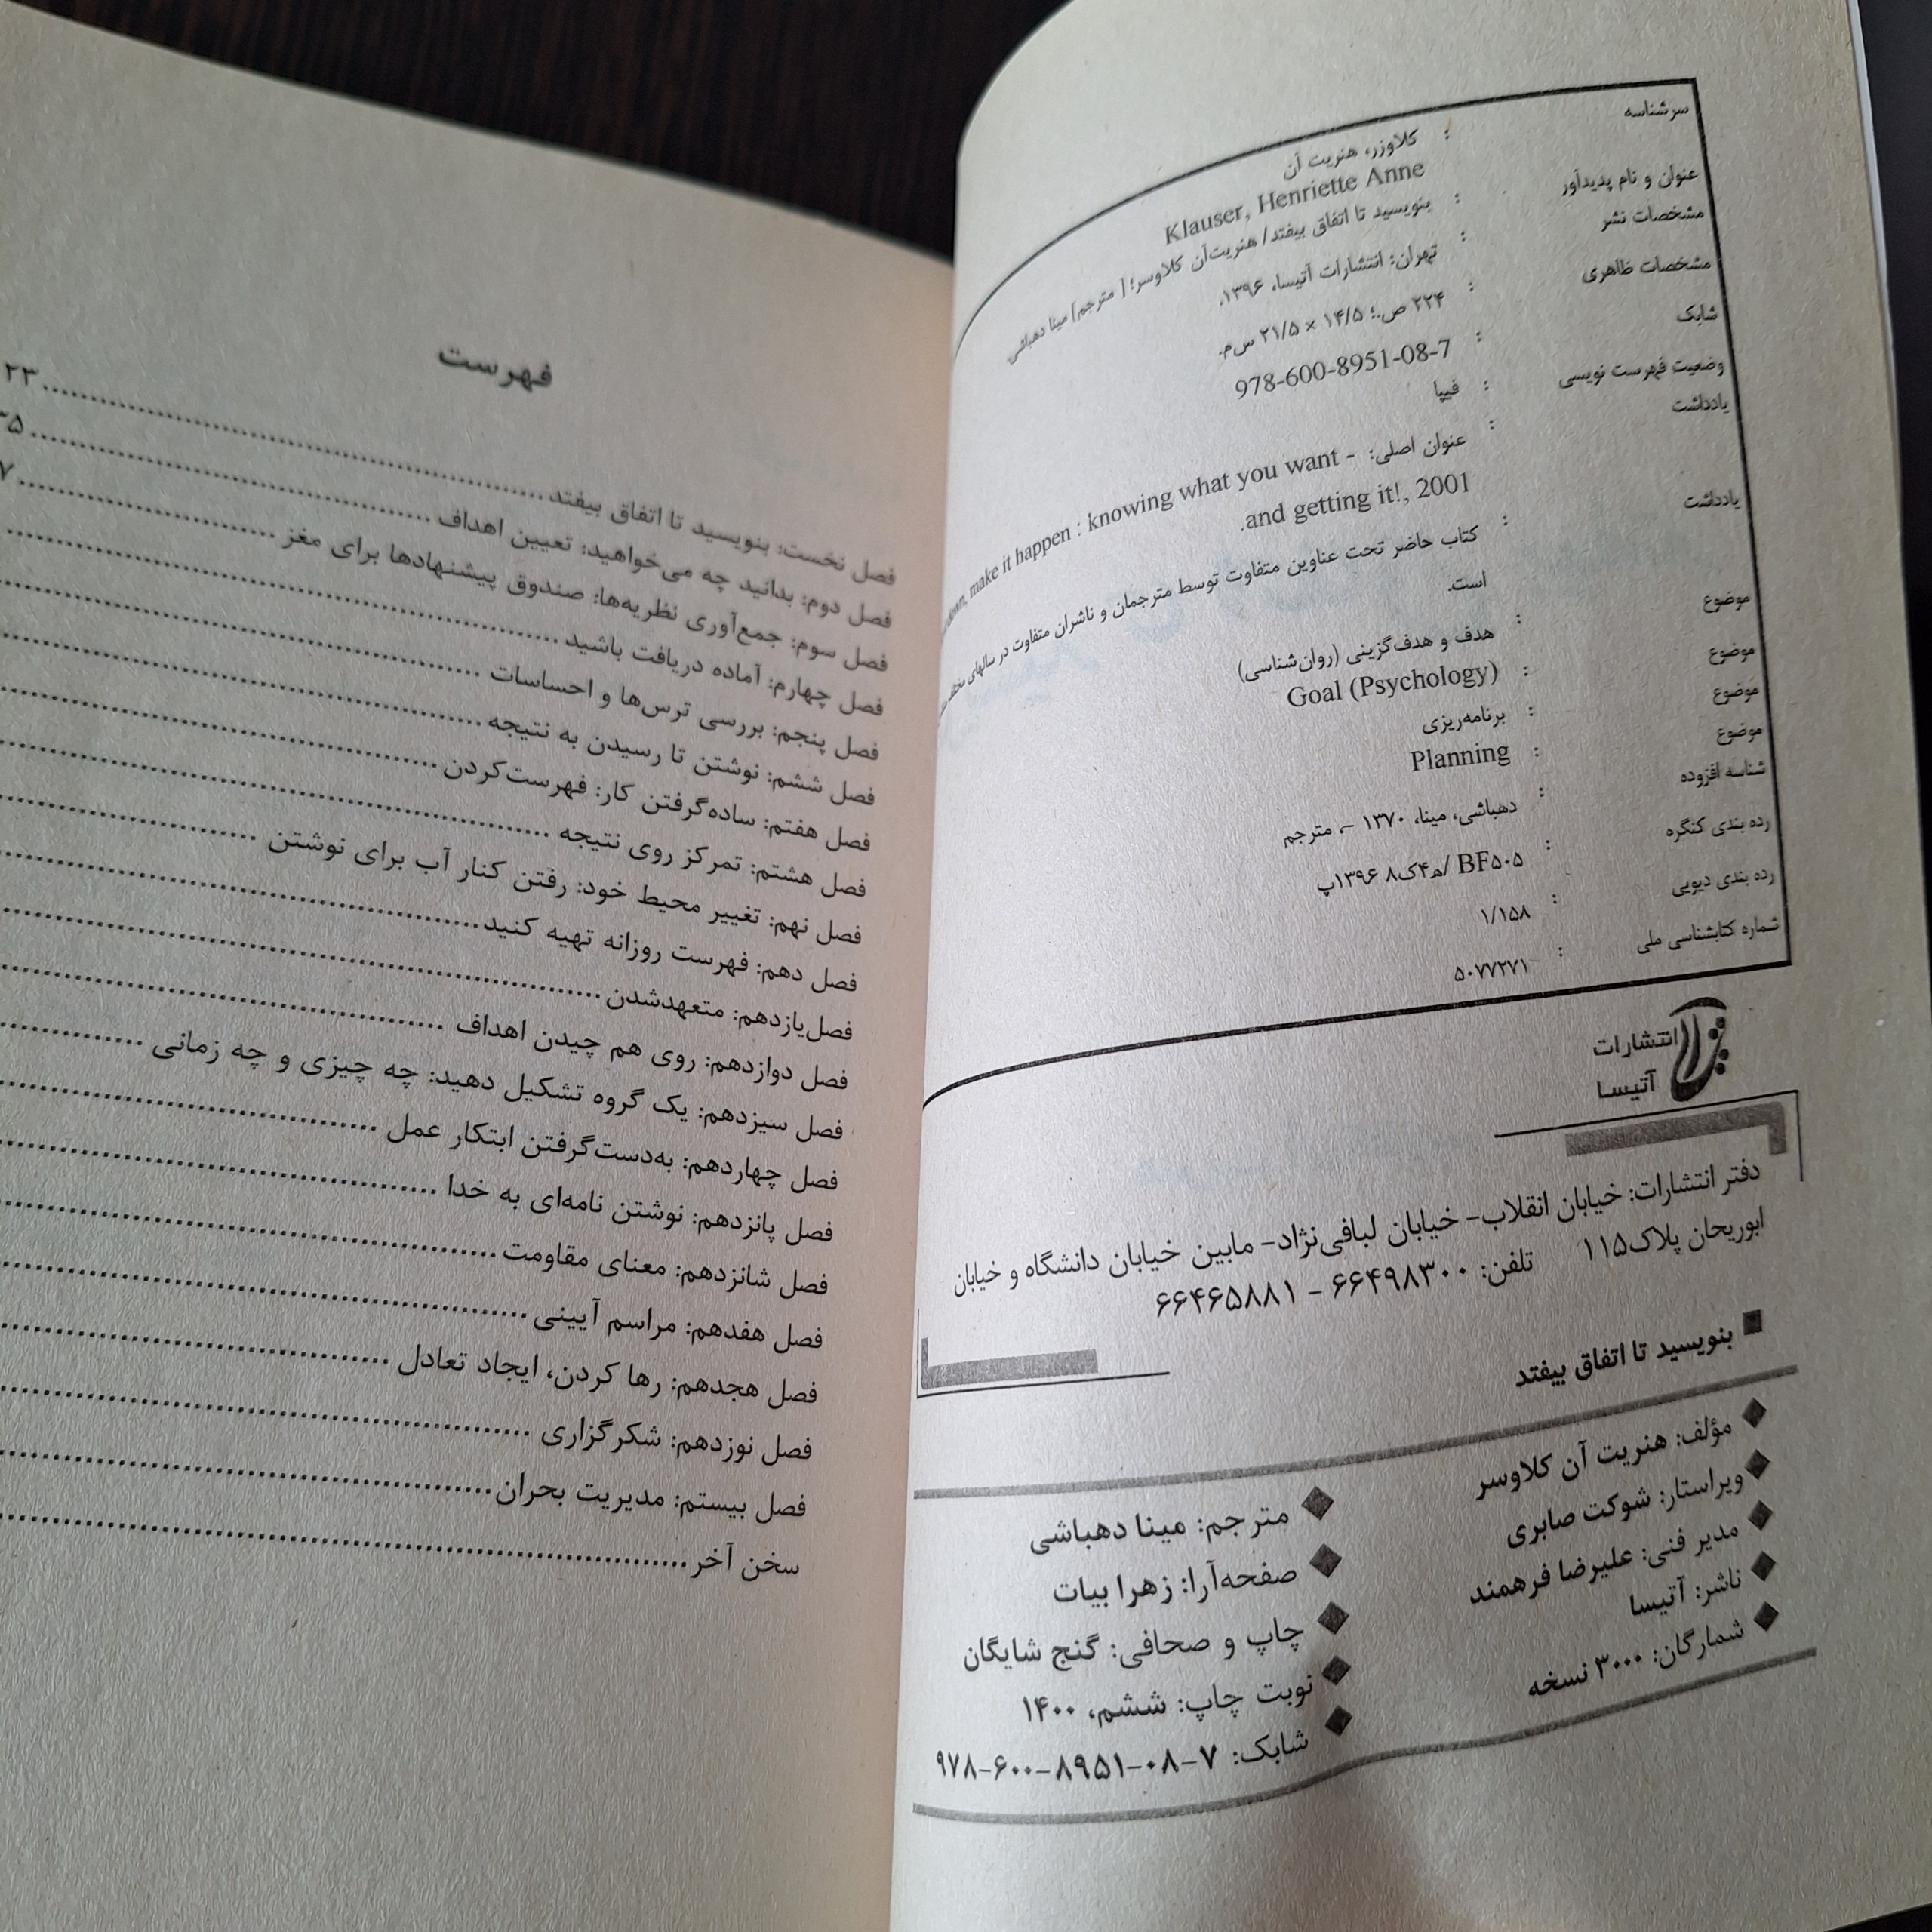 سرشناسه : کلاوزر، هنریت آن
Klauser, Henriette Anne
عنوان و نام پدیدآور : بنویسید تا اتفاق بیفتد/ هنریت‌آن کلاوسر؛ [ مترجم] مینا دهباشی.
مشخصات نشر : تهران: انتشارات آتیسا، ۱۳۹۶.
مشخصات ظاهری : ۲۲۴ ص.؛ ۱۴/۵ × ۲۱/۵ س‌م.
شابک : 978-600-8951-08-7
وضعیت فهرست نویسی : فیپا
یادداشت : عنوان اصلی: down, make it happen : knowing what you want -
and getting it!, 2001.
یادداشت : کتاب حاضر تحت عناوین متفاوت توسط مترجمان و ناشران متفاوت در سالهای
است.
موضوع : هدف و هدف‌گزینی (روان‌شناسی)
موضوع : Goal (Psychology)
موضوع : برنامه‌ریزی
موضوع : Planning
شناسه افزوده : دهباشی، مینا، ۱۳۷۰ -، مترجم
رده بندی کنگره : BF۵۰۵ /ه۴ک۸ ۱۳۹۶پ
رده بندی دیویی : ۱/۱۵۸
شماره کتابشناسی ملی : ۵۰۷۷۲۷۱
انتشارات
آتیسا
دفتر انتشارات: خیابان انقلاب- خیابان لبافی‌نژاد- مابین خیابان دانشگاه و خیابان
ابوریحان پلاک۱۱۵ تلفن: ۶۶۴۹۸۳۰۰ - ۶۶۴۶۵۸۸۱
■ بنویسید تا اتفاق بیفتد
◆ مؤلف: هنریت آن کلاوسر
◆ ویراستار: شوکت صابری
◆ مدیر فنی: علیرضا فرهمند
◆ ناشر: آتیسا
◆ شمارگان: ۳۰۰۰ نسخه
◆ مترجم: مینا دهباشی
◆ صفحه‌آرا: زهرا بیات
◆ چاپ و صحافی: گنج شایگان
◆ نوبت چاپ: ششم، ۱۴۰۰
◆ شابک: ۷-۰۸-۸۹۵۱-۶۰۰-۹۷۸
فهرست
فصل نخست: بنویسید تا اتفاق بیفتد ........ ۲۳
فصل دوم: بدانید چه می‌خواهید: تعیین اهداف ........ ۳۵
فصل سوم: جمع‌آوری نظریه‌ها: صندوق پیشنهادها برای مغز ........
فصل چهارم: آماده دریافت باشید ........
فصل پنجم: بررسی ترس‌ها و احساسات ........
فصل ششم: نوشتن تا رسیدن به نتیجه ........
فصل هفتم: ساده‌گرفتن کار: فهرست‌کردن ........
فصل هشتم: تمرکز روی نتیجه ........
فصل نهم: تغییر محیط خود: رفتن کنار آب برای نوشتن ........
فصل دهم: فهرست روزانه تهیه کنید ........
فصل‌یازدهم: متعهدشدن ........
فصل دوازدهم: روی هم چیدن اهداف ........
فصل سیزدهم: یک گروه تشکیل دهید: چه چیزی و چه زمانی ........
فصل چهاردهم: به‌دست‌گرفتن ابتکار عمل ........
فصل پانزدهم: نوشتن نامه‌ای به خدا ........
فصل شانزدهم: معنای مقاومت ........
فصل هفدهم: مراسم آیینی ........
فصل هجدهم: رها کردن، ایجاد تعادل ........
فصل نوزدهم: شکرگزاری ........
فصل بیستم: مدیریت بحران ........
سخن آخر ........